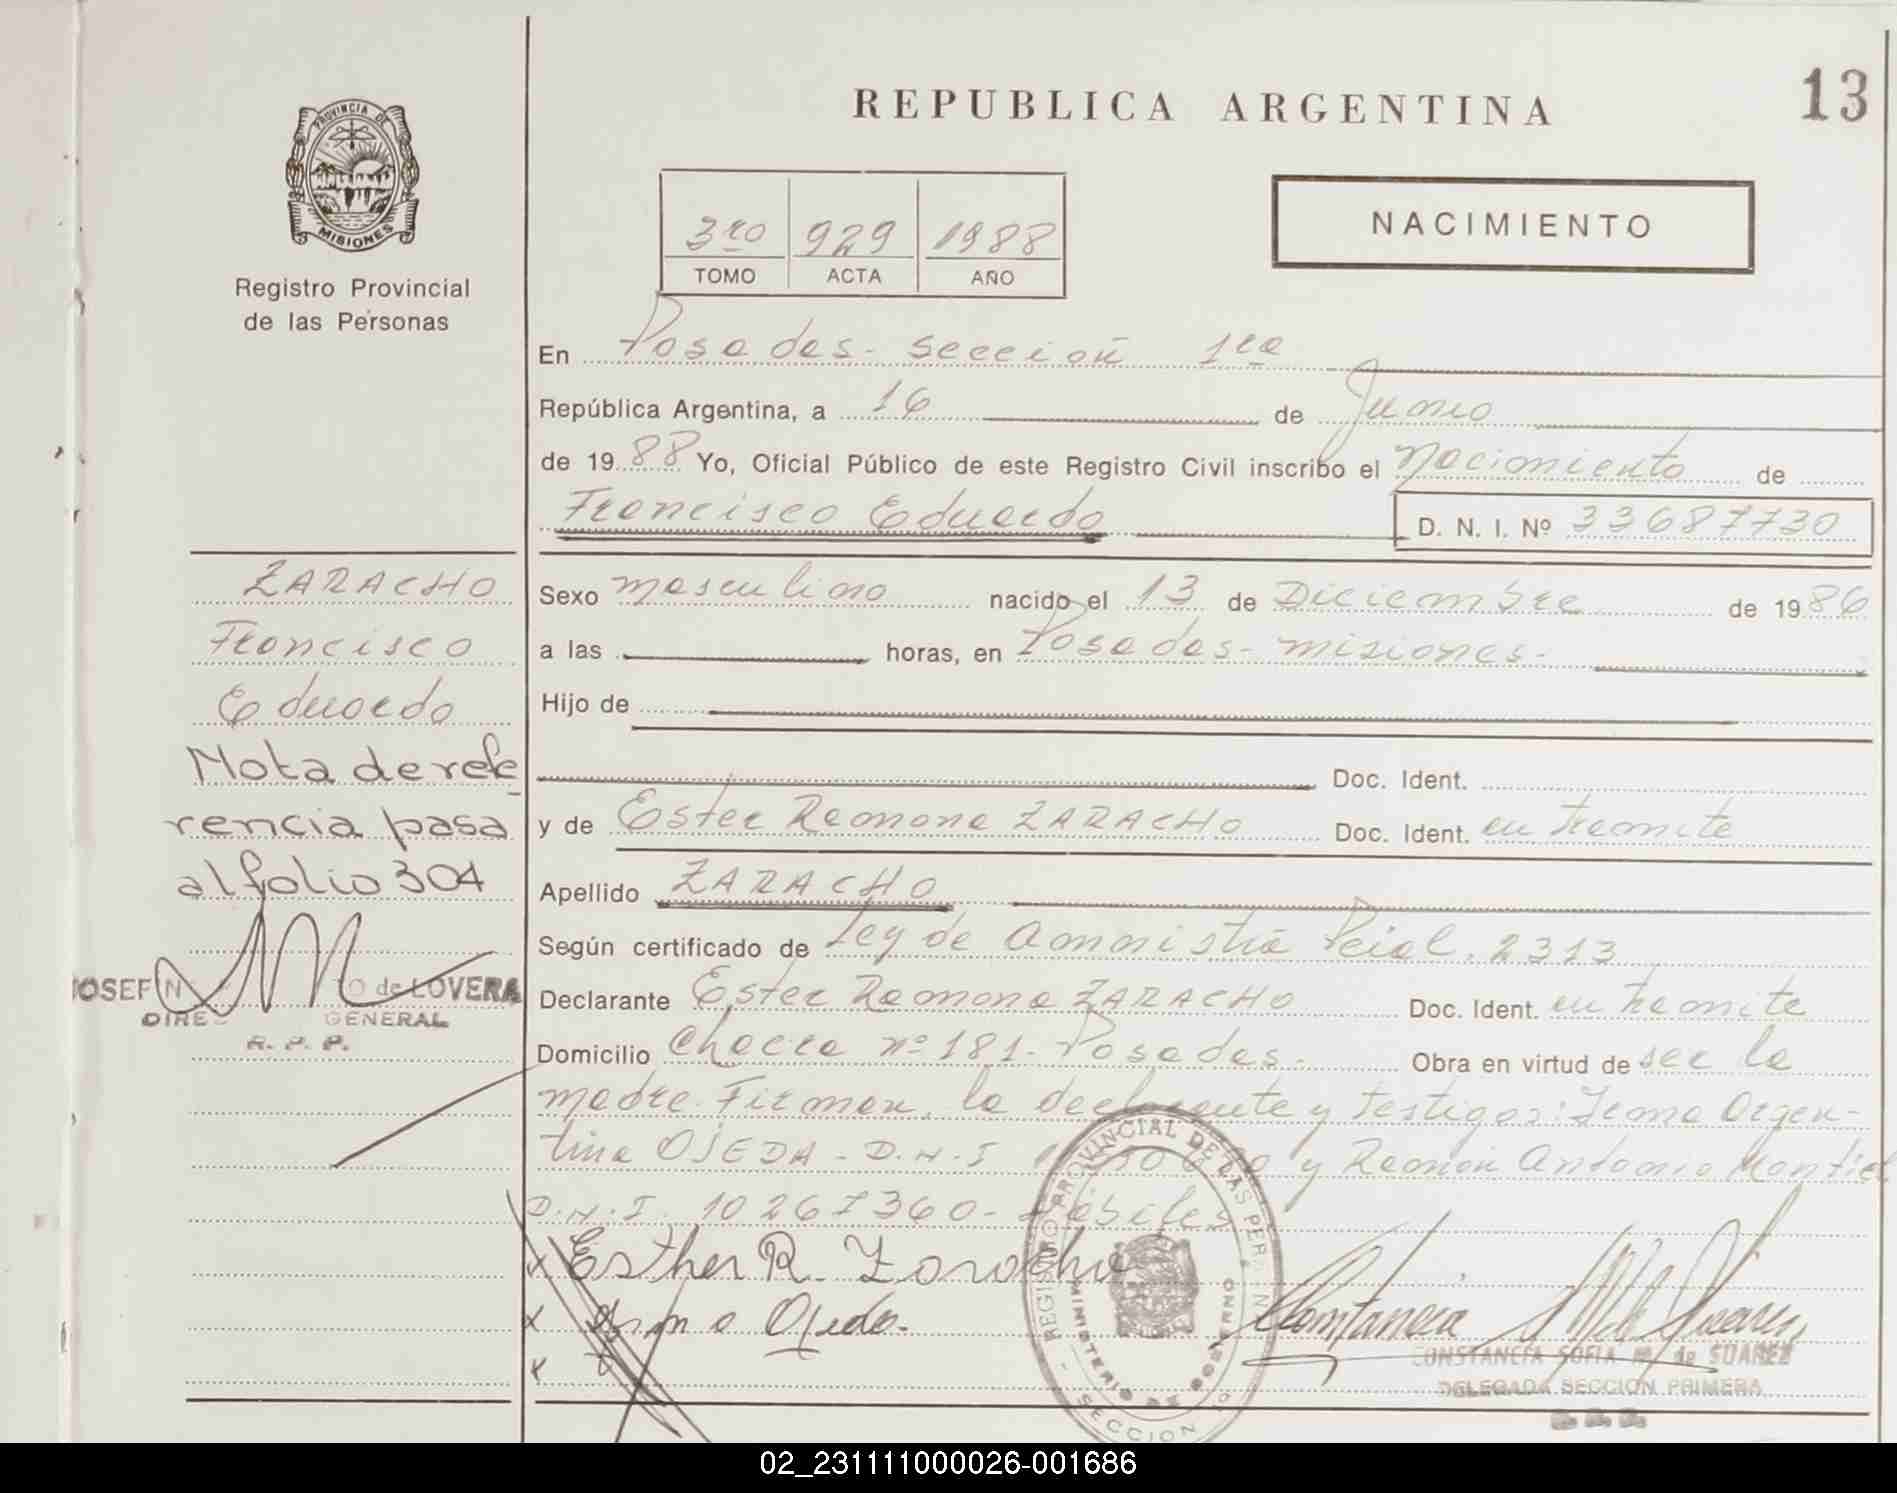 REPUBLICA ARGENTINA
13
PROVINCIA DE
MISIONES
Registro Provincial
de las Personas
3ro 929 1988
TOMO ACTA AÑO
NACIMIENTO
En Posadas - Sección 1ra
República Argentina, a 16 de Junio
de 1988 Yo, Oficial Público de este Registro Civil inscribo el Nacimiento de
Francisco Eduardo D. N. I. Nº 33687730
ZARACHO
Francisco
Eduardo
Nota de refe
rencia pasa
al folio 304
JOSEFIN O de LOVERA
GENERAL
R. P. P.
Sexo masculino nacido el 13 de Diciembre de 1986
a las horas, en Posadas - misiones -
Hijo de
Doc. Ident.
y de Ester Ramona ZARACHO Doc. Ident. en tramite
Apellido ZARACHO
Según certificado de Ley de Amnistía Pcial. 2313
Declarante Ester Ramona ZARACHO Doc. Ident. en tramite
Domicilio Chacra nº 181 - Posadas - Obra en virtud de ser la
madre. Firman, la declarante y testigos: Irma Argen-
tina OJEDA - D.N.I y Ramón Antonio Montiel
D.N.I. 10267360 - hábiles
x Esther R. Zaracho
x Irma Ojeda.
x
REGISTRO PROVINCIAL DE LAS PERSONAS
MINISTERIO DE GOBIERNO
SECCION 1º
Constancia M de Suarez
CONSTANCIA SOFIA M. de SUAREZ
DELEGADA SECCION PRIMERA
R. P. P.
02_231111000026-001686